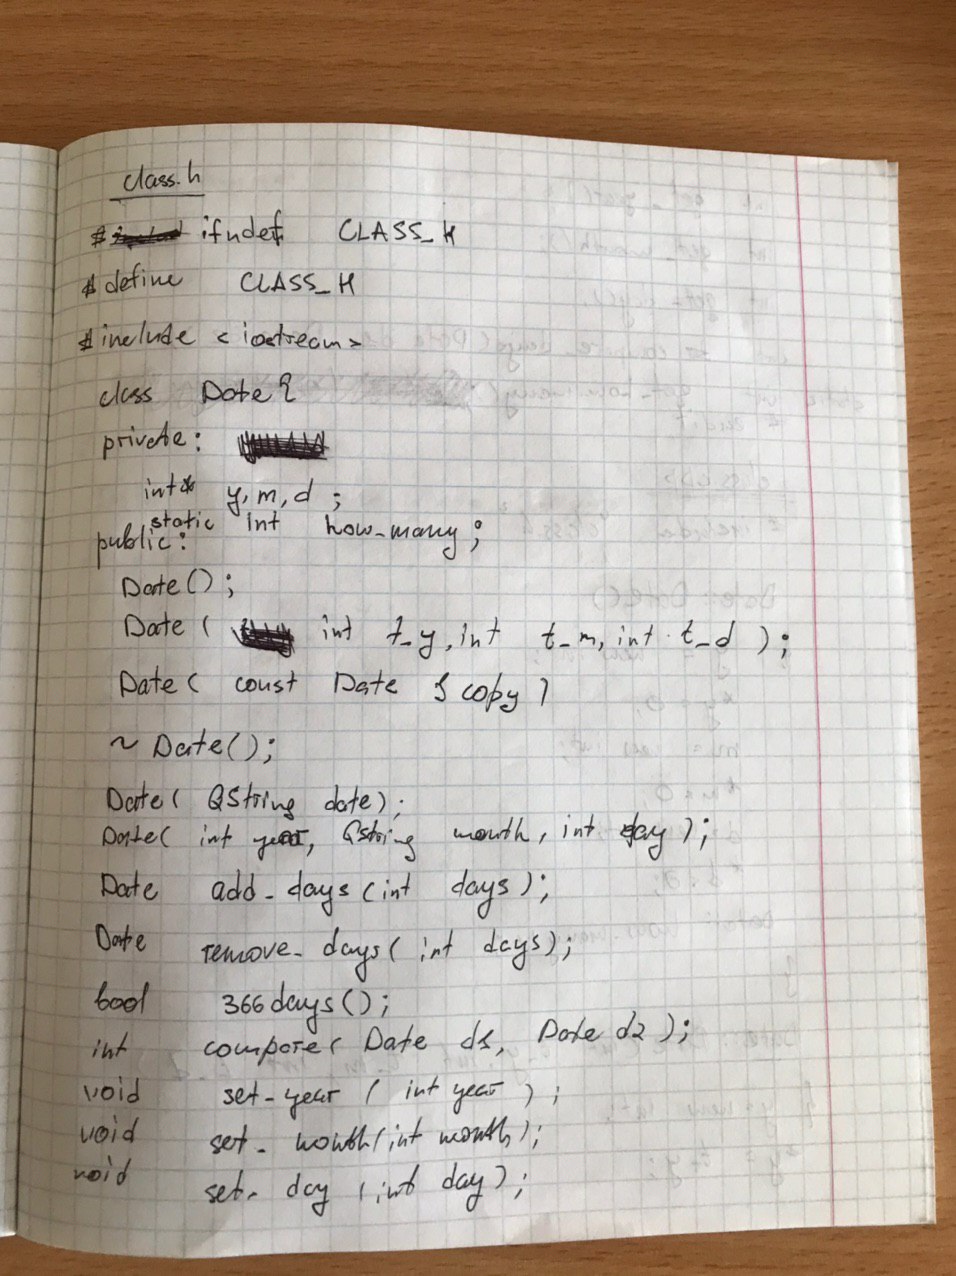 class.h
# ifndef CLASS_H
# define CLASS_H
# include <iostream>
class Date {
private:
int* y, m, d ;
static int how_many;
public:
Date();
Date ( int t_y, int t_m, int t_d );
Date ( const Date & copy )
~ Date();
Date ( QString date);
Date( int year, QString month, int day );
Date add_days (int days );
Date remove_days( int days);
bool 366days();
int compare( Date d1, Date d2 );
void set_year ( int year ) ;
void set_month(int month);
void set_day (int day);